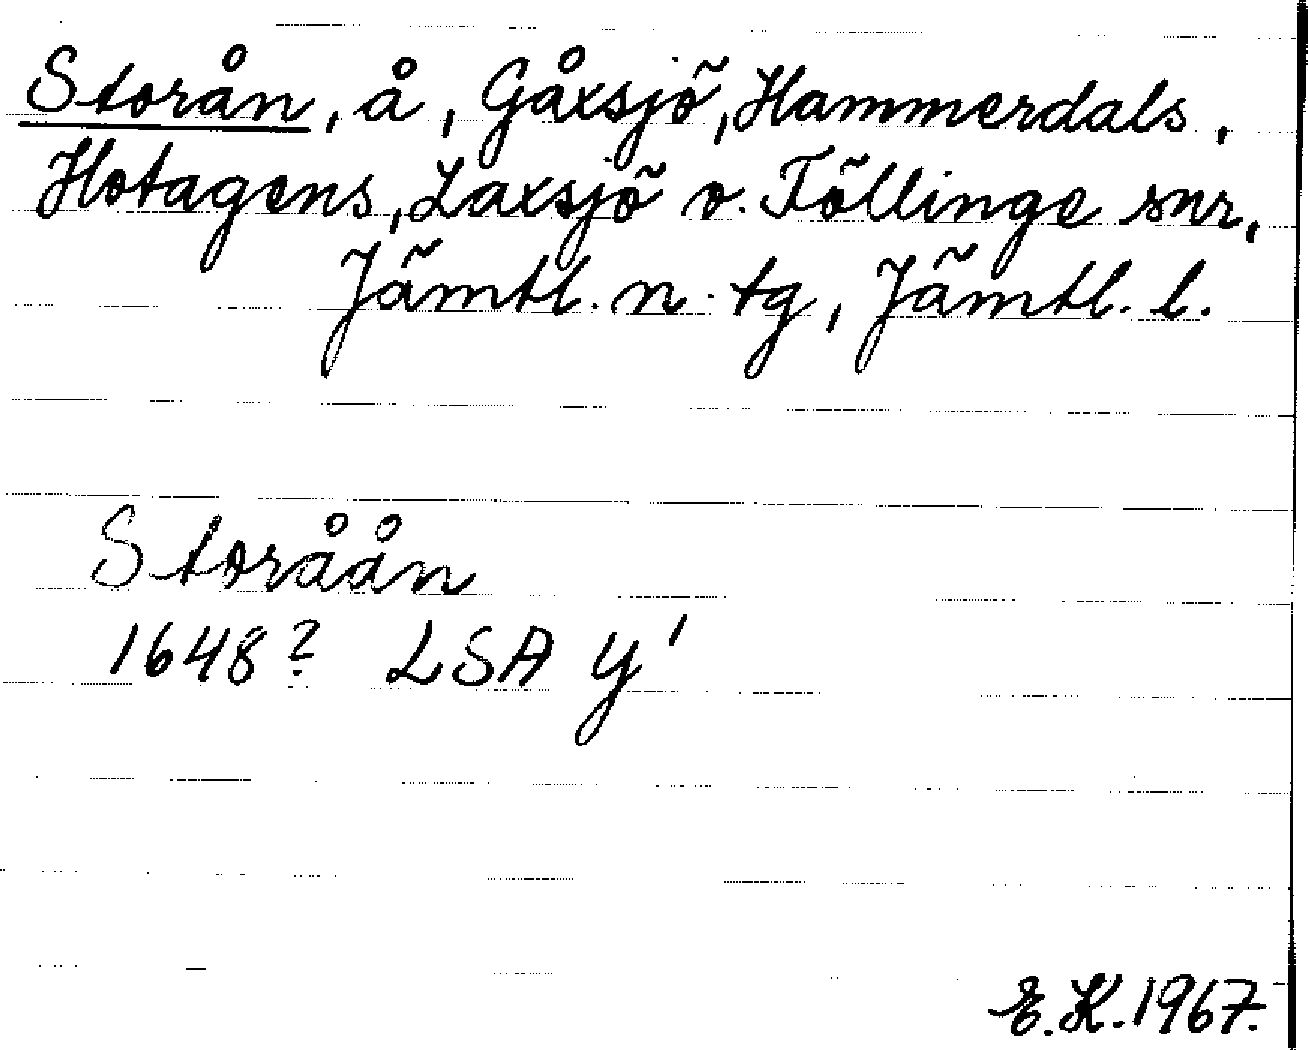 Storån, å, Gåxsjö, Hammerdals,
Hotagens, Laxsjö o. Föllinge snr,
Jämtl. n. tg, Jämtl. l.
Storåån
1648? LSA y'
E.K. 1967.